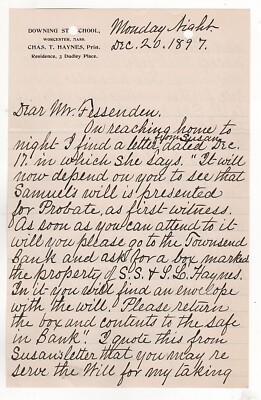 DOWNING ST. SCHOOL,
WORCESTER, MASS.
CHAS. T. HAYNES, Prin.
Residence, 3 Dudley Place.
Monday Night.
Dec. 20. 1897.
Dear Mr. Fessenden.
On reaching home to
night I find a letter from Susan, dated Dec.
17. in which she says. "It will
now depend on you to see that
Samuels will is presented
for Probate, as first witness.
As soon as you can attend to it
will you please go to the Townsend
Bank and ask for a box marked
the property of S. S. & S. L. Haynes.
In it you will find an envelope
with the will. Please return
the box and contents to the safe
in Bank". I quote this from
Susans letter that you may re
serve the Will for my taking